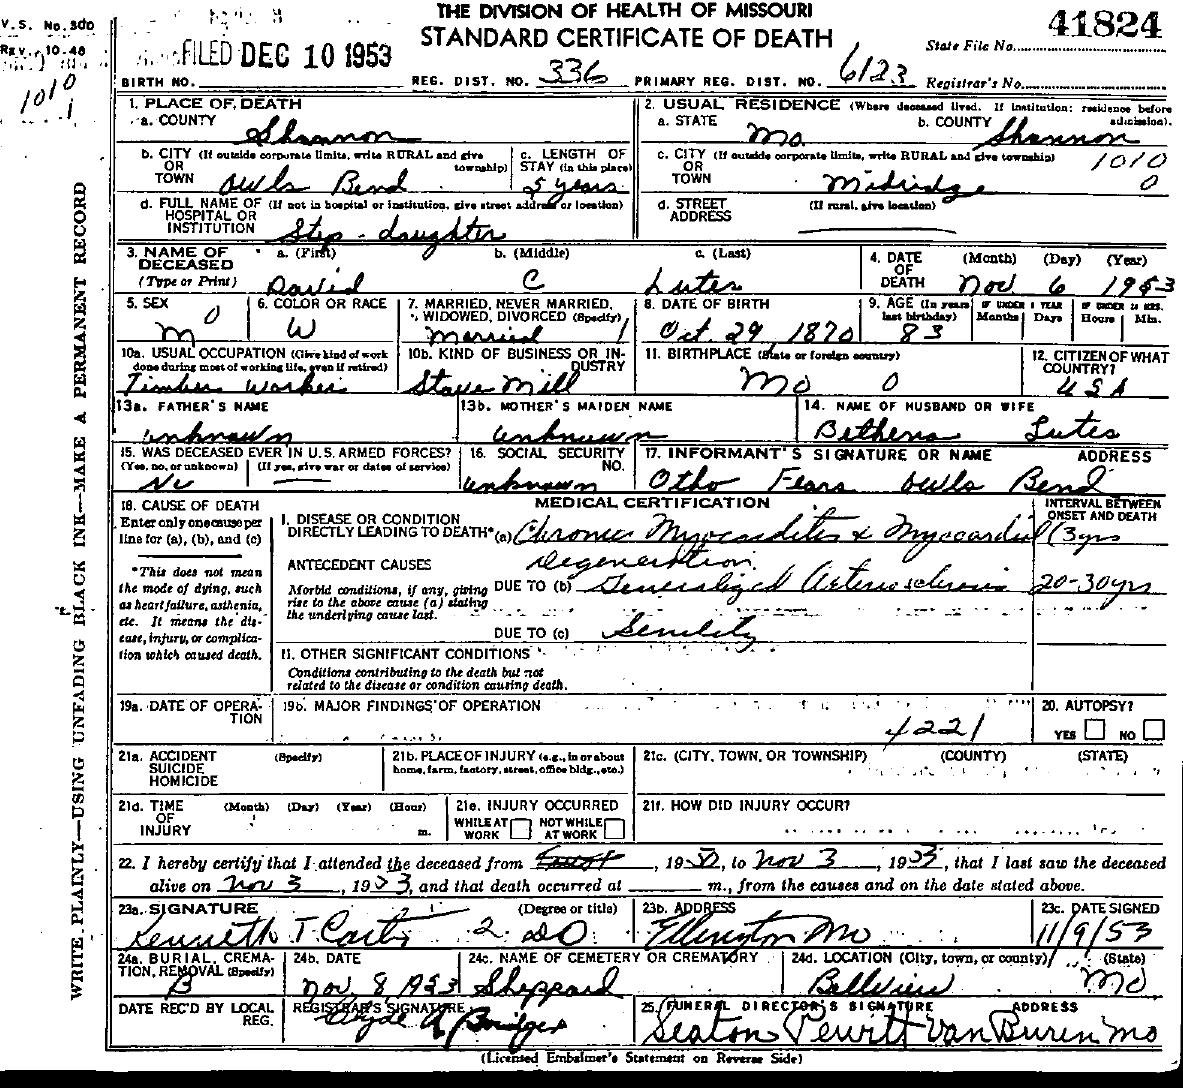 THE DIVISION OF HEALTH OF MISSOURI
STANDARD CERTIFICATE OF DEATH
41824
V.S. No. 300
Rev. 10-48
1010
1
FILED DEC 10 1953
State File No.
BIRTH NO. REG. DIST. NO. 336 PRIMARY REG. DIST. NO. 6123 Registrar's No.
1. PLACE OF DEATH
a. COUNTY Shannon
2. USUAL RESIDENCE (Where deceased lived. If institution: residence before admission).
a. STATE Mo. b. COUNTY Shannon
b. CITY (If outside corporate limits, write RURAL and give township) OR TOWN Owls Bend
c. LENGTH OF STAY (in this place) 5 years
c. CITY (If outside corporate limits, write RURAL and give township) OR TOWN Midridge 1010 0
d. FULL NAME OF (If not in hospital or institution, give street address or location) HOSPITAL OR INSTITUTION Step-daughter
d. STREET ADDRESS (If rural, give location)
3. NAME OF DECEASED (Type or Print) a. (First) David b. (Middle) C c. (Last) Lutes
4. DATE OF DEATH (Month) (Day) (Year) Nov 6 1953
5. SEX M 0
6. COLOR OR RACE W
7. MARRIED, NEVER MARRIED, WIDOWED, DIVORCED (Specify) Married 1
8. DATE OF BIRTH Oct. 29 1870
9. AGE (In years last birthday) 83 IF UNDER 1 YEAR Months Days IF UNDER 24 HRS. Hours Min.
10a. USUAL OCCUPATION (Give kind of work done during most of working life, even if retired) Timber Worker
10b. KIND OF BUSINESS OR INDUSTRY Stave Mill
11. BIRTHPLACE (State or foreign country) Mo 0
12. CITIZEN OF WHAT COUNTRY? USA
13a. FATHER'S NAME unknown
13b. MOTHER'S MAIDEN NAME unknown
14. NAME OF HUSBAND OR WIFE Bethena Lutes
15. WAS DECEASED EVER IN U.S. ARMED FORCES? (Yes, no, or unknown) (If yes, give war or dates of service) No
16. SOCIAL SECURITY NO. unknown
17. INFORMANT'S SIGNATURE OR NAME ADDRESS Otho Fears Owls Bend
18. CAUSE OF DEATH
Enter only one cause per line for (a), (b), and (c)
*This does not mean the mode of dying, such as heart failure, asthenia, etc. It means the disease, injury, or complication which caused death.
MEDICAL CERTIFICATION
INTERVAL BETWEEN ONSET AND DEATH
I. DISEASE OR CONDITION DIRECTLY LEADING TO DEATH* (a) Chronic Myocarditis & Myocardial Degeneration 3 yrs
ANTECEDENT CAUSES
Morbid conditions, if any, giving rise to the above cause (a) stating the underlying cause last.
DUE TO (b) Generalized Arteriosclerosis 20-30 yrs
DUE TO (c) Senility
II. OTHER SIGNIFICANT CONDITIONS
Conditions contributing to the death but not related to the disease or condition causing death.
19a. DATE OF OPERATION
19b. MAJOR FINDINGS OF OPERATION
4221
20. AUTOPSY?
YES NO
21a. ACCIDENT SUICIDE HOMICIDE (Specify)
21b. PLACE OF INJURY (e.g., in or about home, farm, factory, street, office bldg., etc.)
21c. (CITY, TOWN, OR TOWNSHIP) (COUNTY) (STATE)
21d. TIME OF INJURY (Month) (Day) (Year) (Hour) m.
21e. INJURY OCCURRED
WHILE AT WORK NOT WHILE AT WORK
21f. HOW DID INJURY OCCUR?
22. I hereby certify that I attended the deceased from , 1950, to Nov 3, 1953, that I last saw the deceased
alive on Nov 3, 1953, and that death occurred at m., from the causes and on the date stated above.
23a. SIGNATURE (Degree or title) Kenneth T. Carter 2 DO
23b. ADDRESS Ellington Mo
23c. DATE SIGNED 11/9/53
24a. BURIAL, CREMATION, REMOVAL (Specify) B
24b. DATE Nov. 8 1953
24c. NAME OF CEMETERY OR CREMATORY Sheppard
24d. LOCATION (City, town, or county) (State) Bellview Mo
DATE REC'D BY LOCAL REG.
REGISTRAR'S SIGNATURE Clyde A. Bridges
25. FUNERAL DIRECTOR'S SIGNATURE ADDRESS Seaton Pewitt Van Buren Mo
(Licensed Embalmer's Statement on Reverse Side)
WRITE PLAINLY—USING UNFADING BLACK INK—MAKE A PERMANENT RECORD